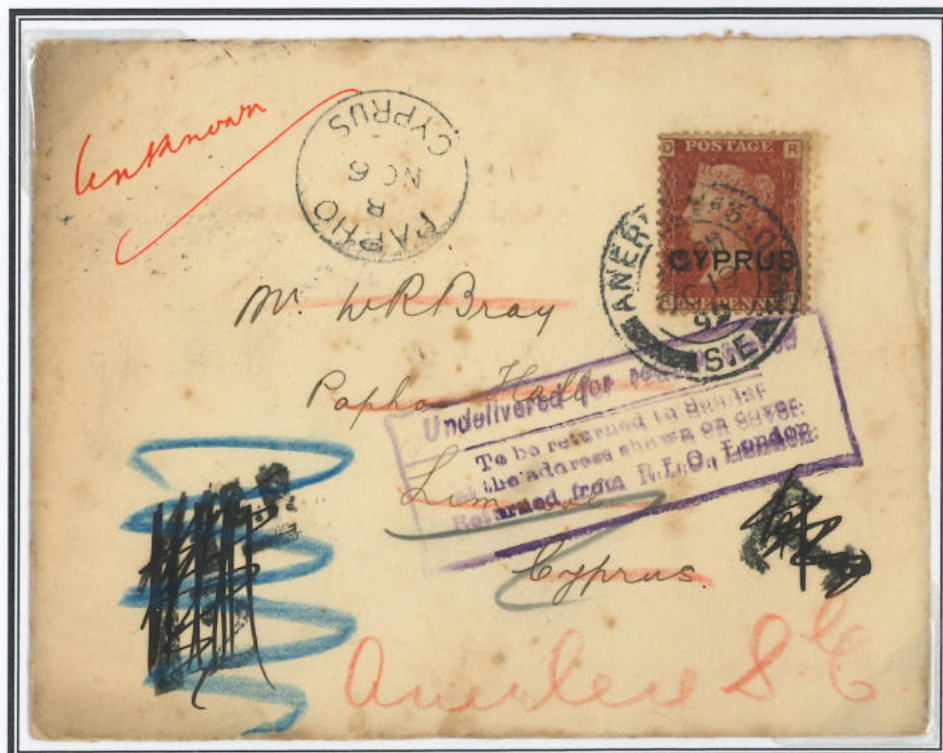 Unknown
PAPHO
R
NO 6
CYPRUS
D POSTAGE R
CYPRUS
ONE PENNY
ANER
S.E
Mr. W R Bray
Papho
Cyprus.
Undelivered for
To be returned to Sender
at the address shown on cover.
Returned from R.L.O., London.
Anerley S.E